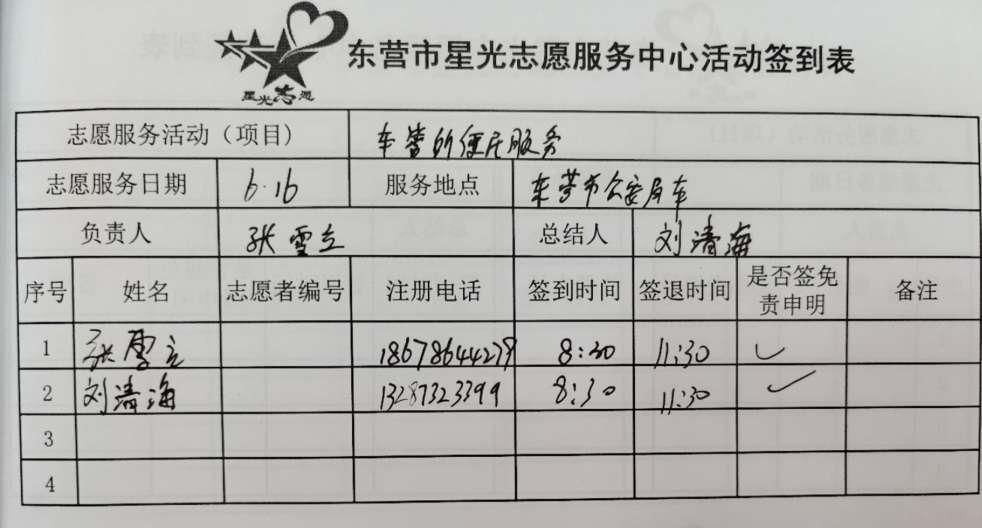 星光志愿
东营市星光志愿服务中心活动签到表
志愿服务活动（项目） 车管所便民服务
志愿服务日期 6.16 服务地点 东营市公安局车
负责人 张雪立 总结人 刘清海
序号 姓名 志愿者编号 注册电话 签到时间 签退时间 是否签免
责申明 备注
1 张雪立 18678644279 8:30 11:30 ✓
2 刘清海 13287323399 8:30 11:30 ✓
3
4